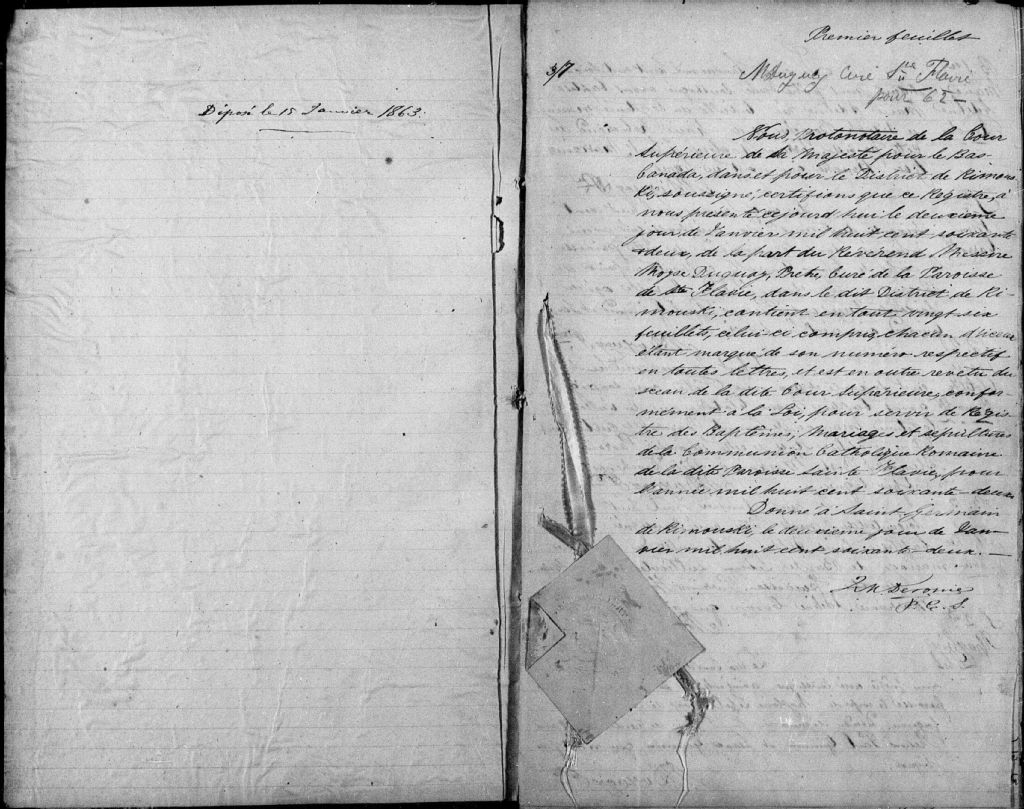 Déposé le 15 Janvier 1863.
Premier feuillet
3/7
M Duguay Curé Ste Flavie
pour 62 —
Nous, Protonotaire de la Cour
Supérieure de Sa Majesté pour le Bas
Canada, dans et pour le District de Rimous
ki, soussigné, certifions que ce Registre, à
nous présenté cejourd'hui le deuxième
jour de Janvier mil huit cent soixante
&deux, de la part du Révérend Messire
Moyse Duguay, Prêtre, Curé de la Paroisse
de Ste Flavie, dans le dit District de Ri-
mouski, contient en tout vingt six
feuillets, celui-ci compris, chacun d'iceux
étant marqué de son numéro respectif
en toutes lettres, et est en outre revêtu du
sceau de la dite Cour Supérieure, confor-
mément à la Loi, pour servir de Régis
tre des Baptêmes, Mariages et sépultures
de la Communion Catholique Romaine
de la dite Paroisse Sainte Flavie, pour
l'année mil huit cent soixante-deux
Donné à Saint Germain
de Rimouski, le deuxième jour de Jan-
vier mil huit cent soixante-deux. —
P. C. S.